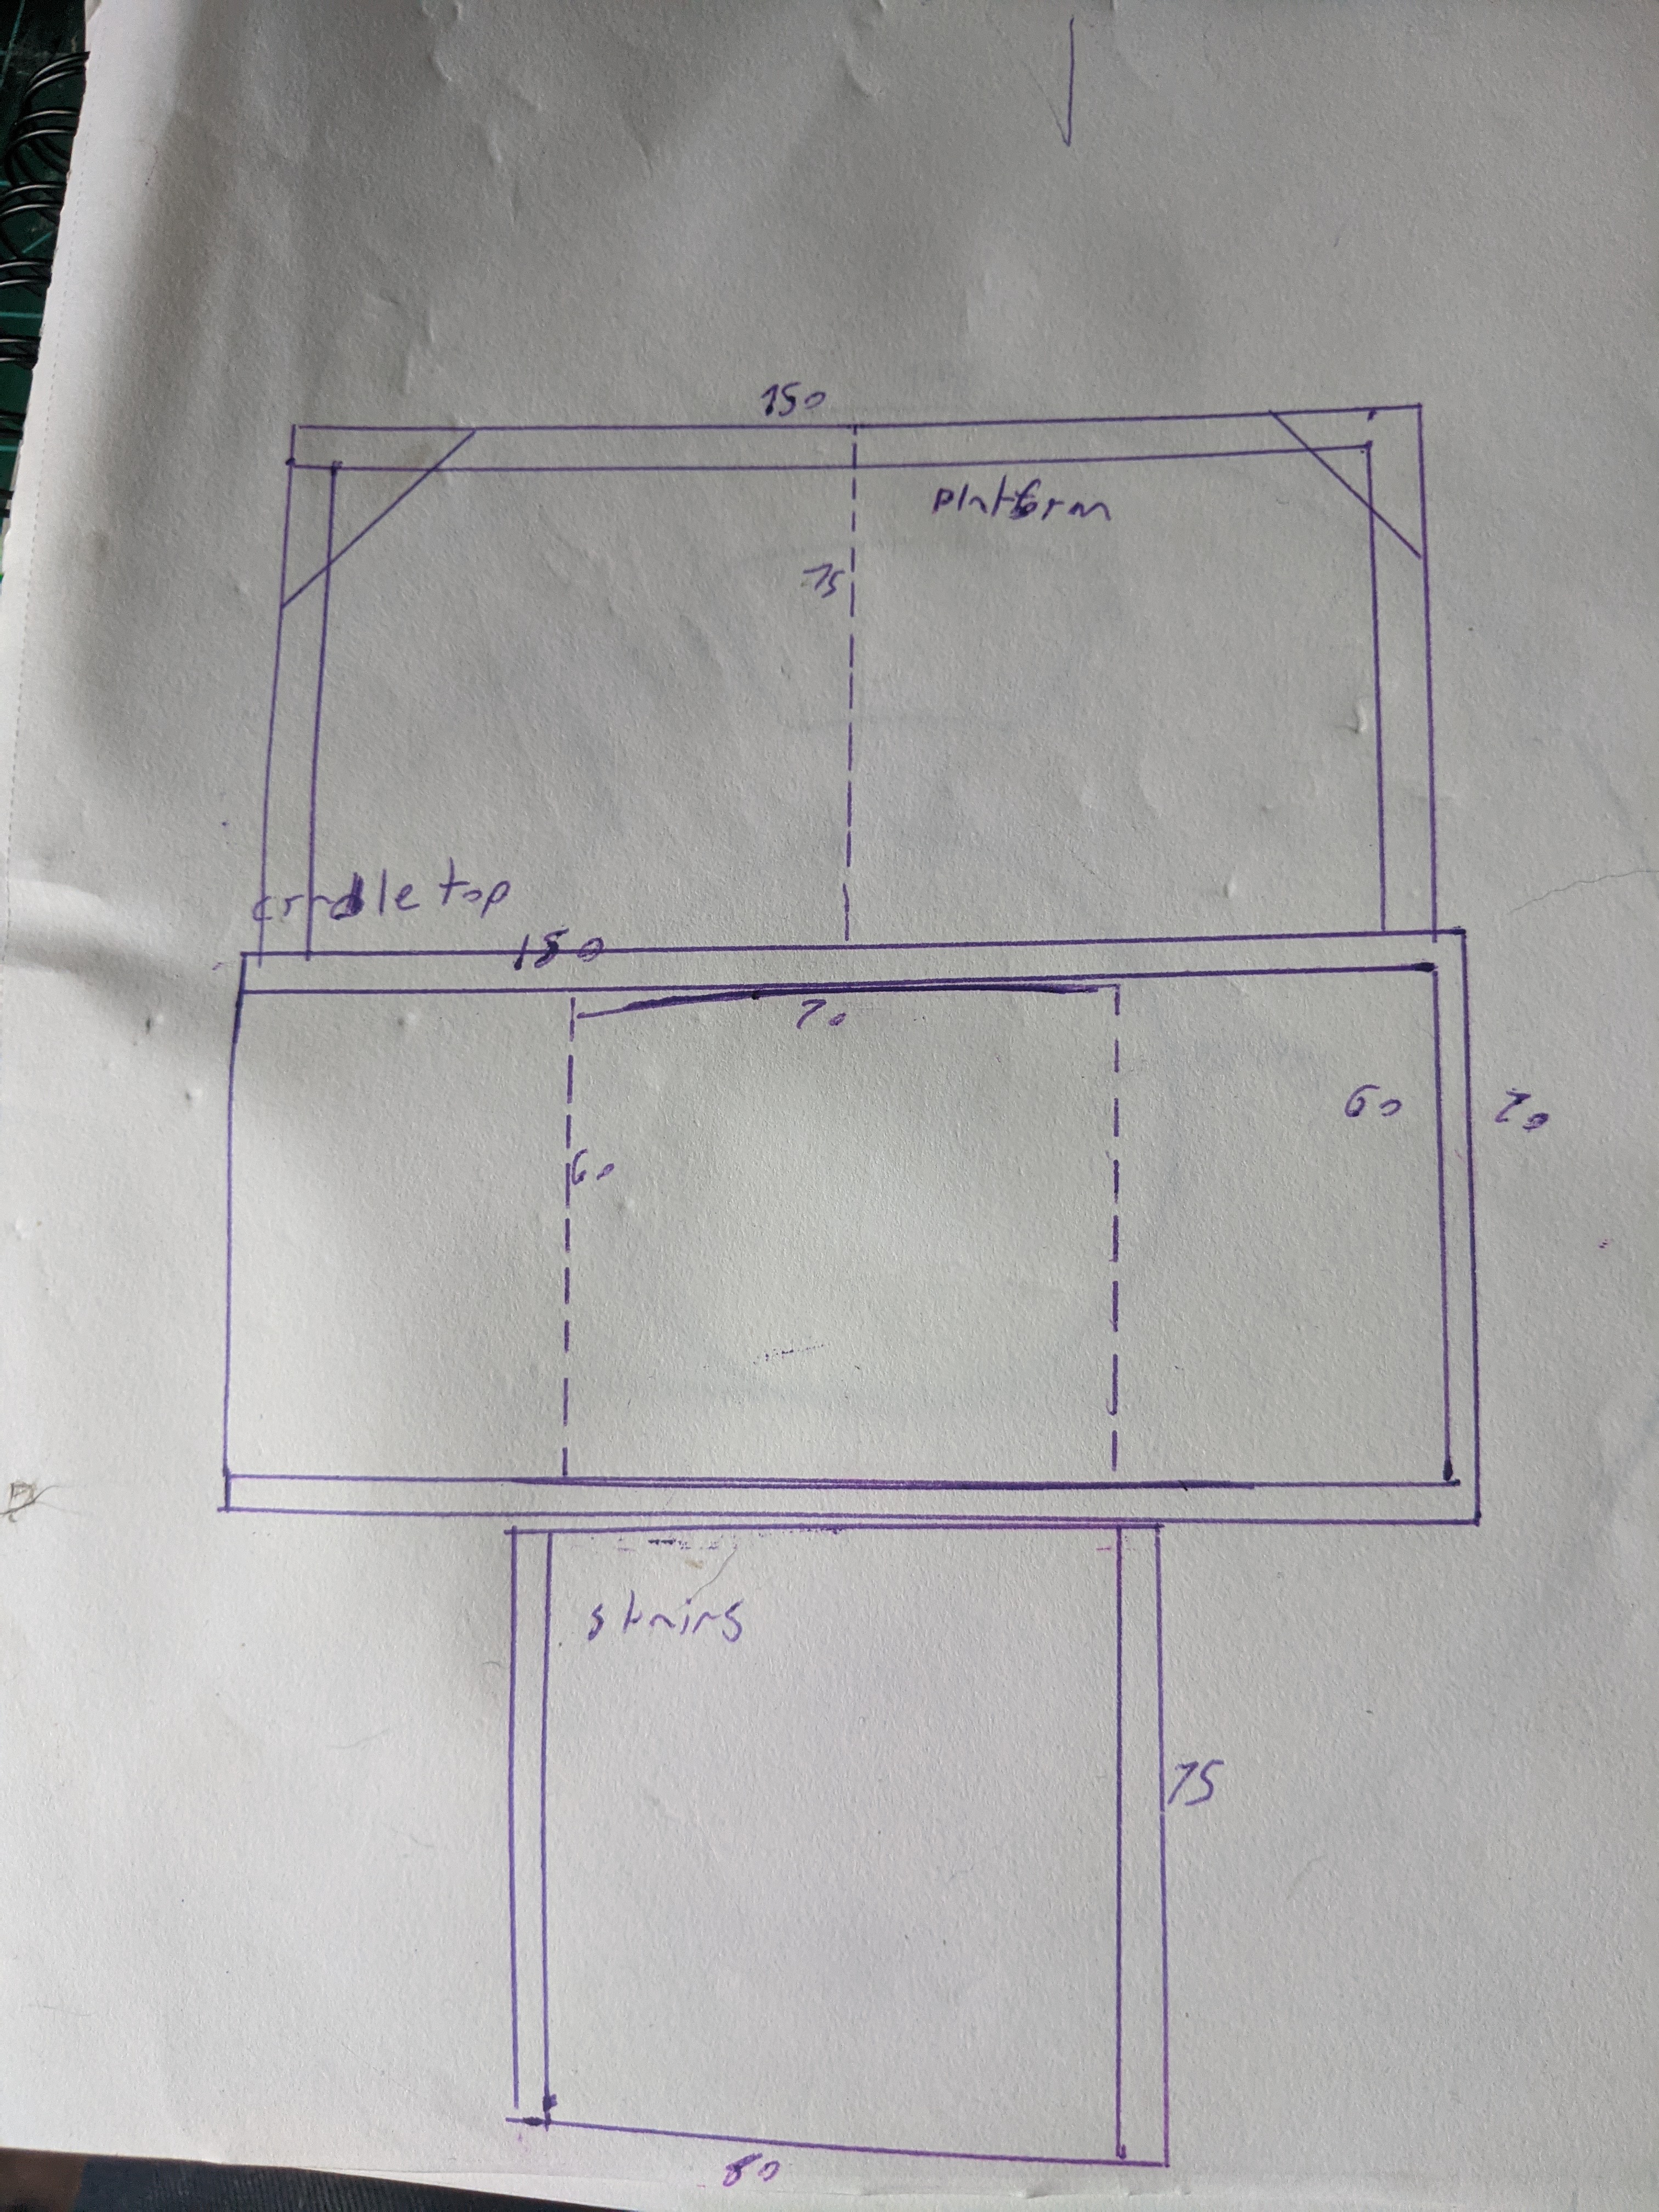 150
platform
75
cradle top
180
70
60
70
60
stairs
75
80